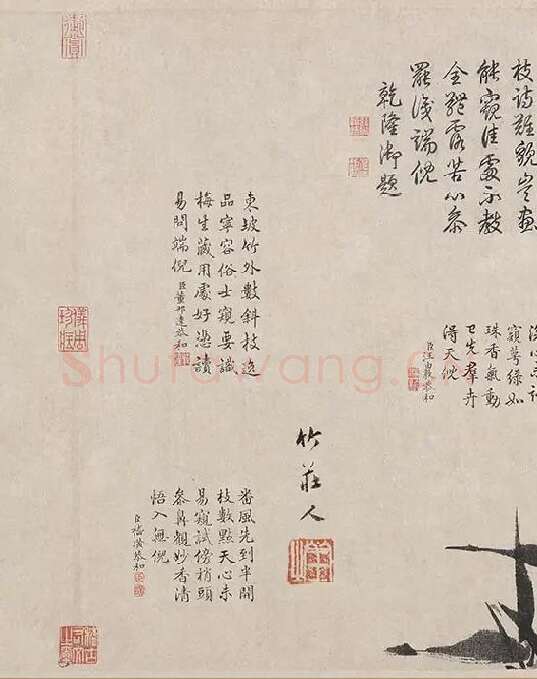 枝詩難貌豈畫
能窺佳處不教
全體露苦心參
罷淺端倪
乾隆御題
窺萼綠如
珠香氣動
已先羣卉
得天倪
臣汪由敦恭和
東坡竹外數斜枝逸
品寧容俗士窺要識
梅生藏用處好憑讀
易問端倪
臣董邦達恭和
竹莊人
番風先到半開
枝數點天心未
易窺試傍梢頭
參鼻觀妙香清
悟入無倪
恭和
Shufawang.c